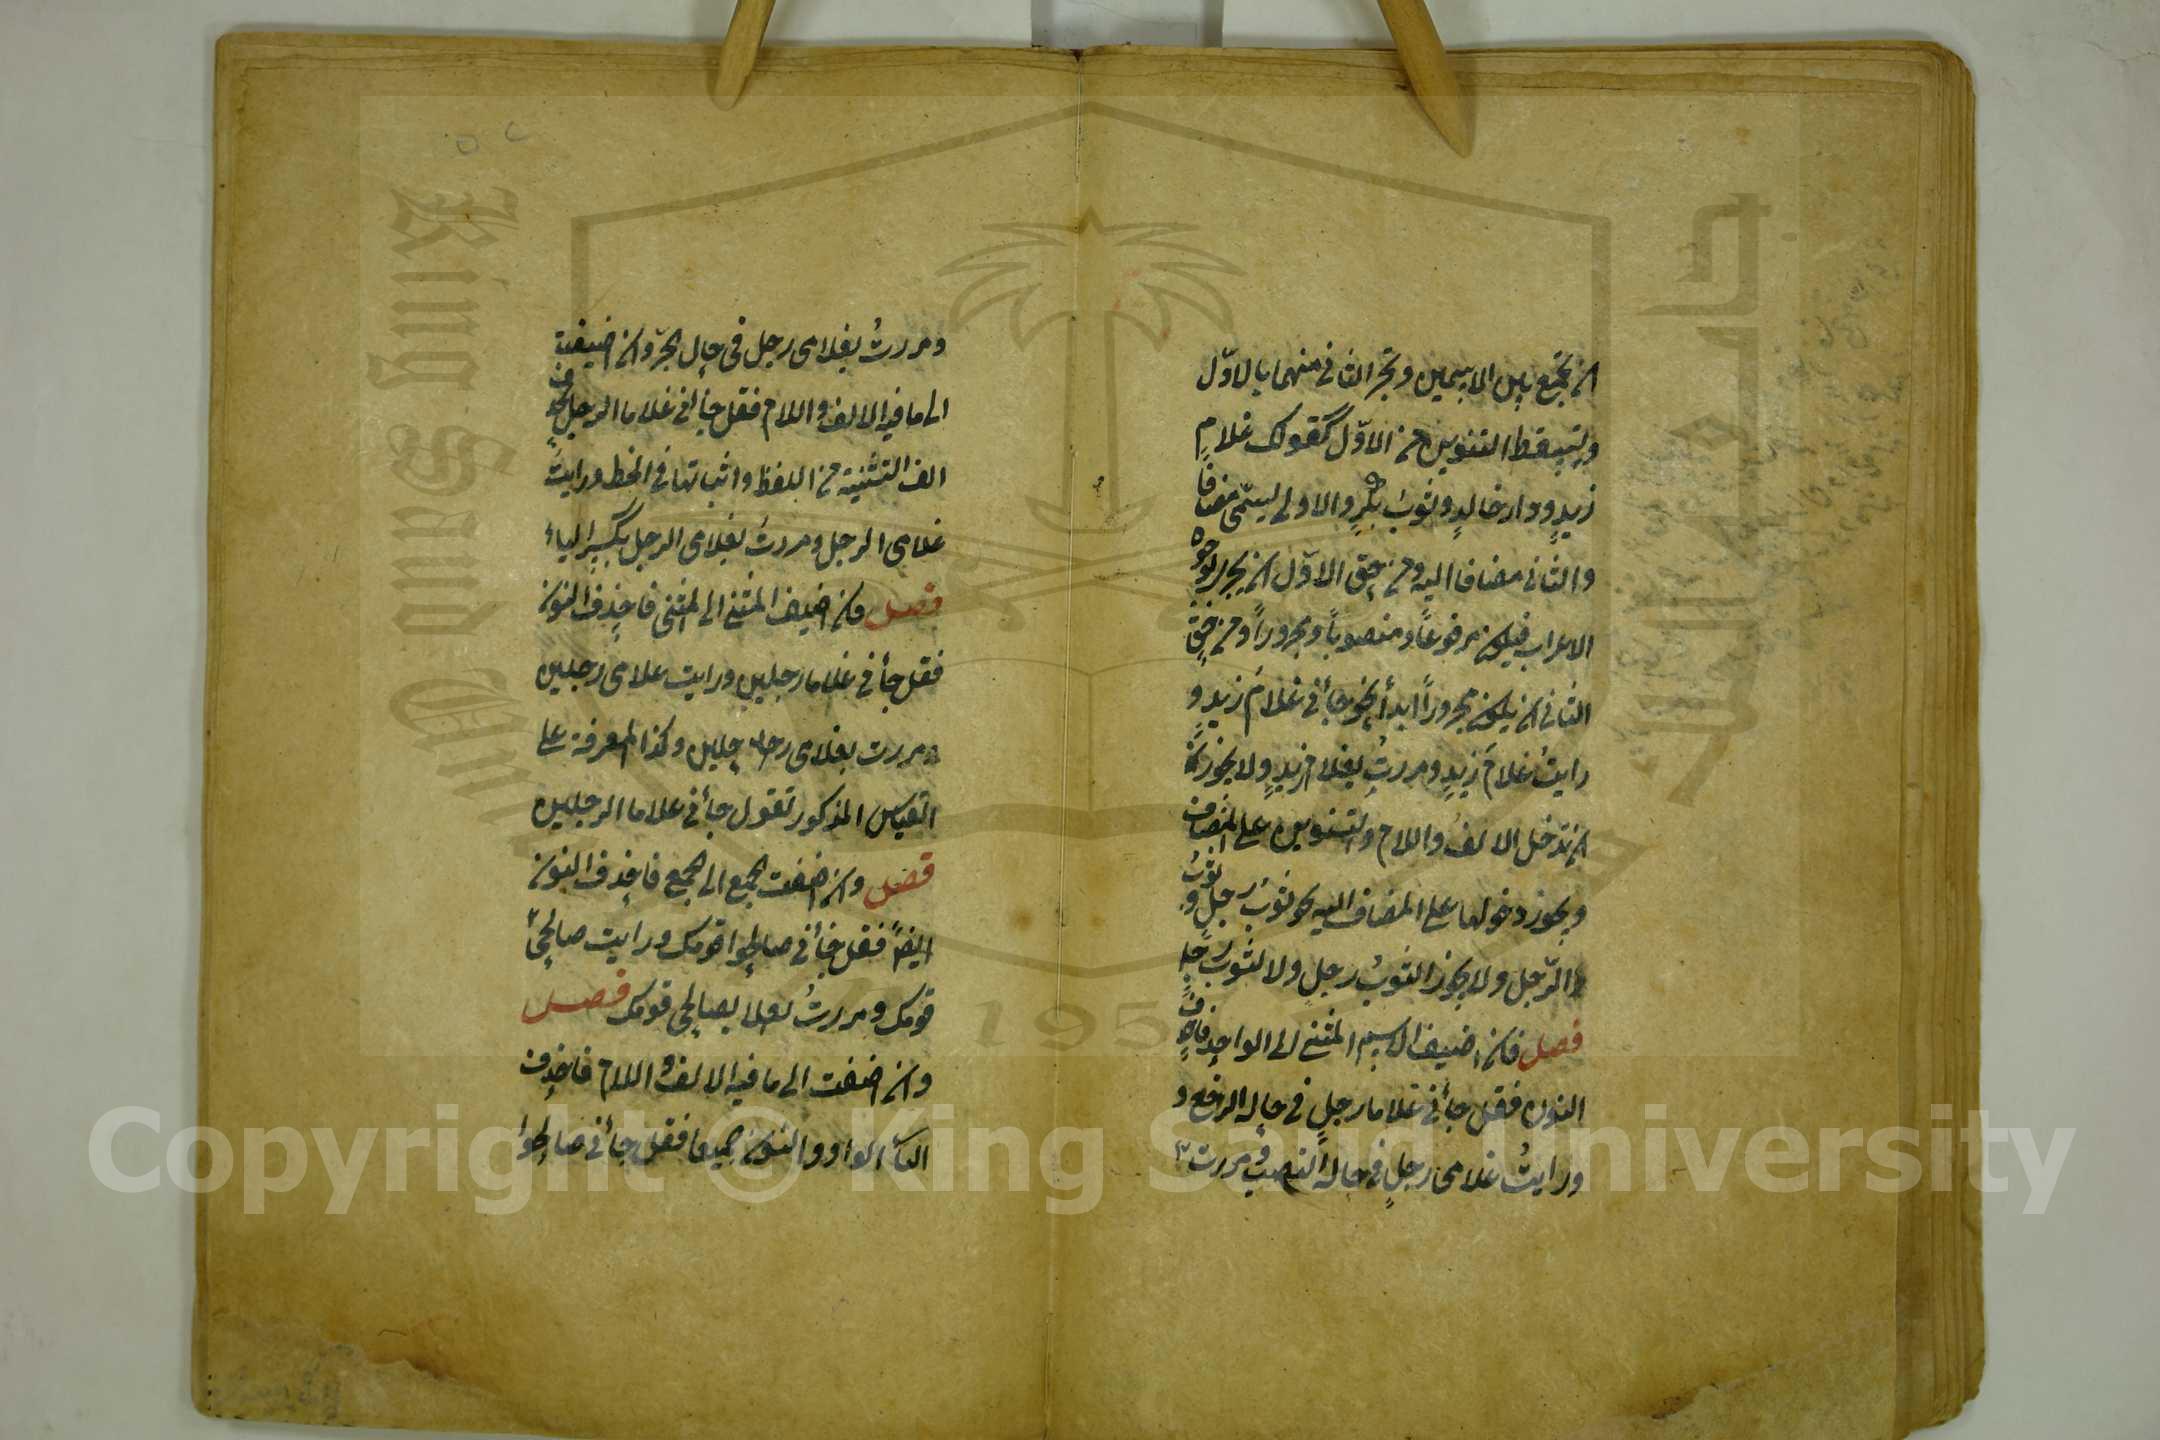 ان تجمع بين الاسمين وتجر الثاني منهما بالاوّل
وتسقط التنوين من الاوّل كقولك غلام
زيدٍ ودار خالدٍ وثوب بكرٍ والاولى يسمّى مضافًا
والثاني مضافا اليه ومن حق الاوّل ان يجري بوجوه
الاعراب فيكون مرفوعًا ومنصوباً ومجروراً ومن حق
الثاني ان يكون مجروراً ابداً نحو جاني غلامُ زيدٍ و
رايتُ غلامَ زيدٍ ومررتُ بغلامِ زيدٍ ولا يجوز
ان تدخل الالف واللام والتنوين على المضاف
ويجوز دخولها على المضاف اليه نحو ثوبُ رجلٍ و ثوبُ
الرّجل ولا يجوز الثوبُ رجلٍ ولا ثوبٌ رجل
فصل فان اضيف الاسم المثنى الى الواحد فاحذف
النون فقل جأني غلاما رجلٍ في حالة الرفع و
ورايتُ غلامى رجلٍ في حالة النصب و مررت
ومررتُ بغلامى رجل في حال الجرّ وان اضيفت
الى ما فيه الالف واللام فقل جأني غلاما الرجل بحذف
الف التثنية من اللفظ واثباتها في الخط ورايت
غلامى الرجل ومررتُ بغلامى الرجل بكسر الياء
فصل وان اضيف المثنى الى المثنى فاحذف النون
فقل جأني غلاما رجلين ورايت غلامى رجلين
ومررت بغلامى رجلين وكذا المعرفة على
القياس المذكور تقول جأني غلاما الرجلين
فصل وان اضفت الجمع الى الجمع فاحذف النون
ايضاً فقل جأني صالحوا قومك ورايت صالحى
قومك ومررتُ بصالحى قومك فصل
وان اضفت الى ما فيه الالف واللام فاحذف
الواو والنون جميعا فقل جأني صالحوا
King Saud Univ
195
Copyright © King Saud University